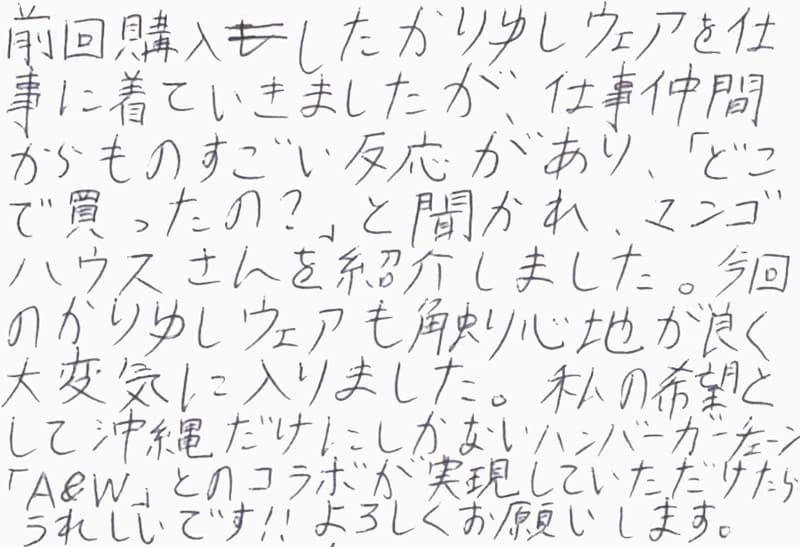 前回購入したかりゆしウェアを仕
事に着ていきましたが、仕事仲間
からものすごい反応があり、「どこ
で買ったの？」と聞かれ、マンゴ
ハウスさんを紹介しました。今回
のかりゆしウェアも触り心地が良く
大変気に入りました。私の希望と
して沖縄だけにしかないハンバーガーチェーン
「A&W」とのコラボが実現していただけたら
うれしいです!!よろしくお願いします。